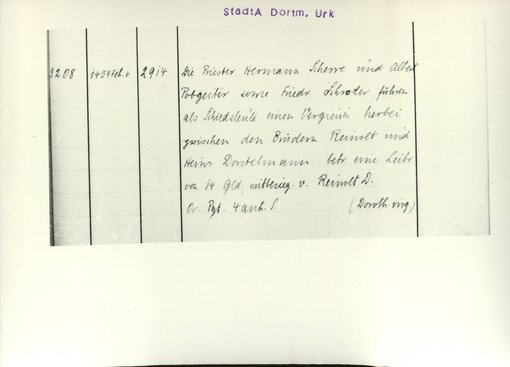 StadtA Dortm. Urk
3208 1454 Feb. 6 2914 Die Priester Hermann Scherre und Albert
Potgeiter sowie Friedr. Schroder führen
als Schiedsleute einen Vergleich herbei
zwischen den Brüdern Reinolt und
Heinr. Dorstelmann betr. eine Leibr.
von 14 Gld. v. Reinolt D.
Or. Pgt. 4 anh. S. (Doroth virg)